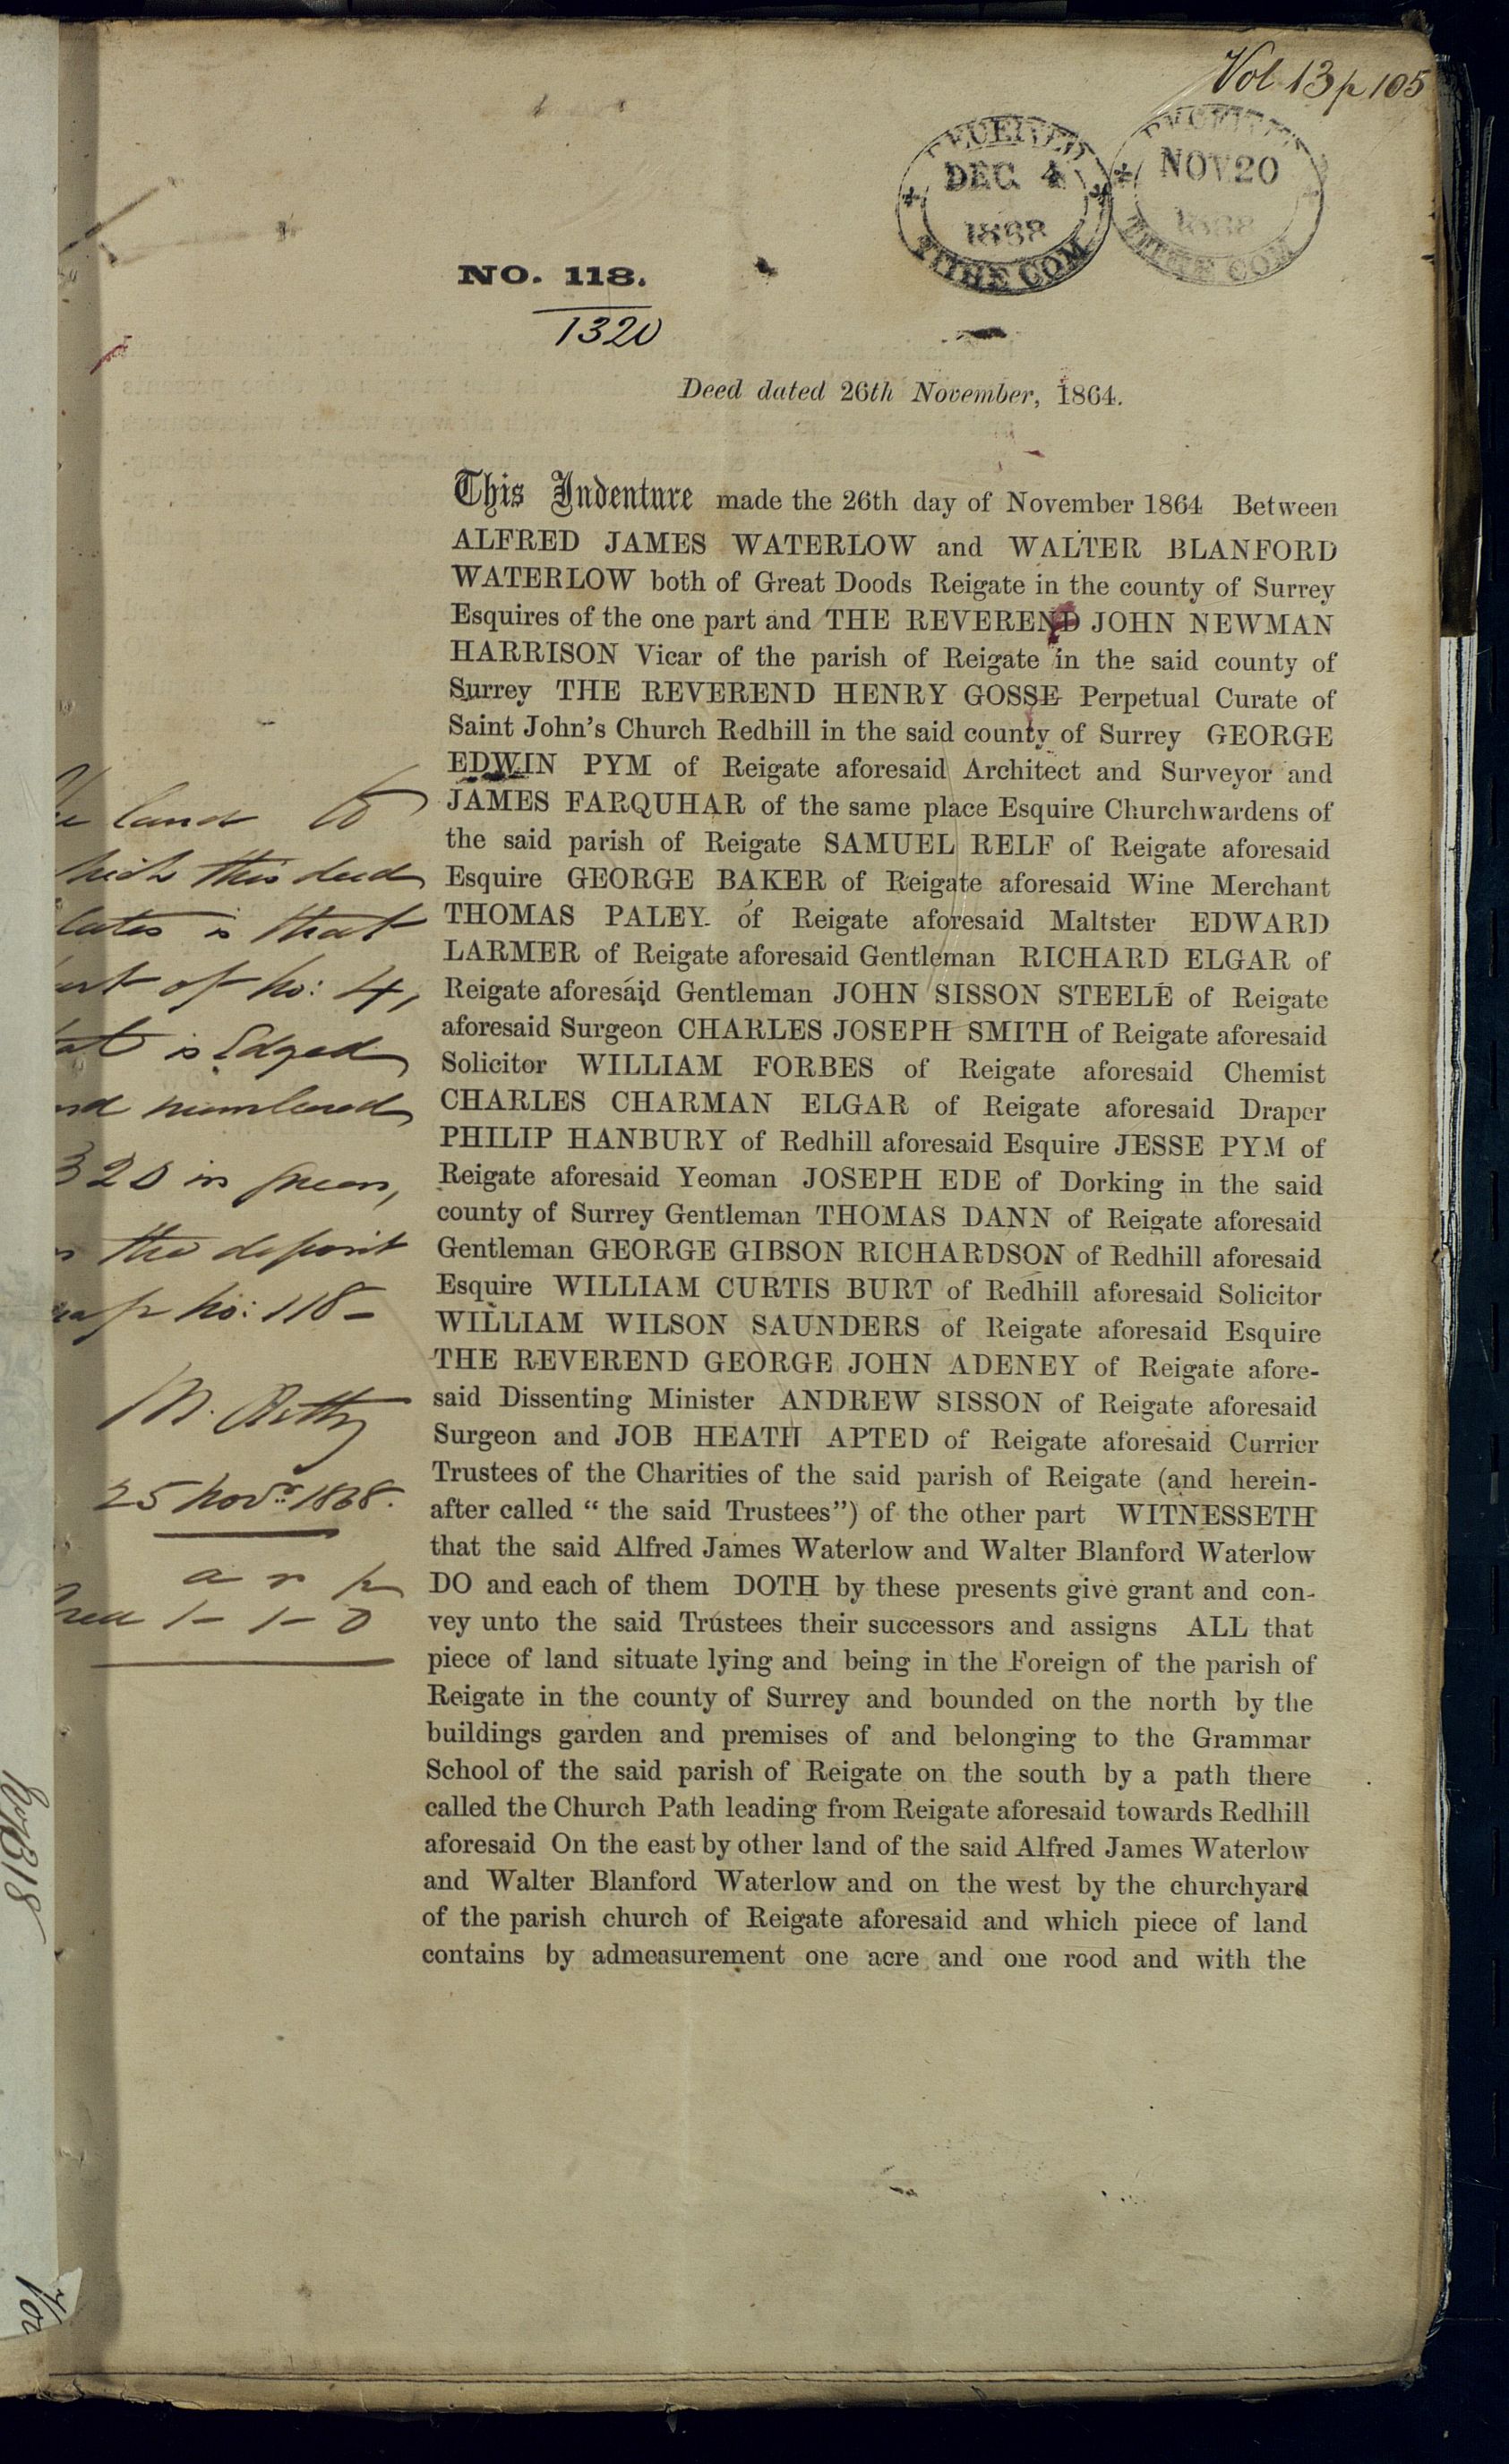 Vol 13 p 105
RECEIVED
DEC. 4
1868
TITHE COM
NOV 20
1868
TITHE COM
NO. 118.
1320
Deed dated 26th November, 1864.
This Indenture made the 26th day of November 1864 Between
ALFRED JAMES WATERLOW and WALTER BLANFORD
WATERLOW both of Great Doods Reigate in the county of Surrey
Esquires of the one part and THE REVEREND JOHN NEWMAN
HARRISON Vicar of the parish of Reigate in the said county of
Surrey THE REVEREND HENRY GOSSE Perpetual Curate of
Saint John's Church Redhill in the said county of Surrey GEORGE
EDWIN PYM of Reigate aforesaid Architect and Surveyor and
JAMES FARQUHAR of the same place Esquire Churchwardens of
the said parish of Reigate SAMUEL RELF of Reigate aforesaid
Esquire GEORGE BAKER of Reigate aforesaid Wine Merchant
THOMAS PALEY of Reigate aforesaid Maltster EDWARD
LARMER of Reigate aforesaid Gentleman RICHARD ELGAR of
Reigate aforesaid Gentleman JOHN SISSON STEELE of Reigate
aforesaid Surgeon CHARLES JOSEPH SMITH of Reigate aforesaid
Solicitor WILLIAM FORBES of Reigate aforesaid Chemist
CHARLES CHARMAN ELGAR of Reigate aforesaid Draper
PHILIP HANBURY of Redhill aforesaid Esquire JESSE PYM of
Reigate aforesaid Yeoman JOSEPH EDE of Dorking in the said
county of Surrey Gentleman THOMAS DANN of Reigate aforesaid
Gentleman GEORGE GIBSON RICHARDSON of Redhill aforesaid
Esquire WILLIAM CURTIS BURT of Redhill aforesaid Solicitor
WILLIAM WILSON SAUNDERS of Reigate aforesaid Esquire
THE REVEREND GEORGE JOHN ADENEY of Reigate afore-
said Dissenting Minister ANDREW SISSON of Reigate aforesaid
Surgeon and JOB HEATH APTED of Reigate aforesaid Currier
Trustees of the Charities of the said parish of Reigate (and herein-
after called “ the said Trustees”) of the other part WITNESSETH
that the said Alfred James Waterlow and Walter Blanford Waterlow
DO and each of them DOTH by these presents give grant and con-
vey unto the said Trustees their successors and assigns ALL that
piece of land situate lying and being in the Foreign of the parish of
Reigate in the county of Surrey and bounded on the north by the
buildings garden and premises of and belonging to the Grammar
School of the said parish of Reigate on the south by a path there
called the Church Path leading from Reigate aforesaid towards Redhill
aforesaid On the east by other land of the said Alfred James Waterlow
and Walter Blanford Waterlow and on the west by the churchyard
of the parish church of Reigate aforesaid and which piece of land
contains by admeasurement one acre and one rood and with the
land to
this deed
is that
of no: 4,
is Edged
numbered
320 in green,
the deposit
map no: 118 -
25 Novr. 1868.
a r p
1 - 1 - 0